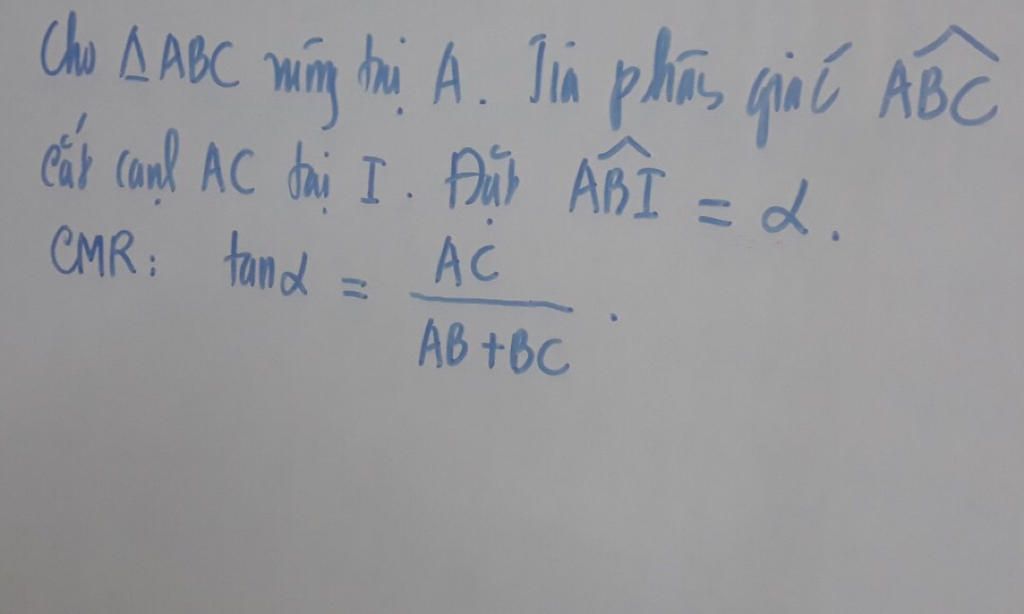 Cho ΔABC vuông tại A. Tia phân giác \widehat{ABC}
cắt cạnh AC tại I. Đặt \widehat{ABI} = α.
CMR: tanα = \frac{AC}{AB+BC}.